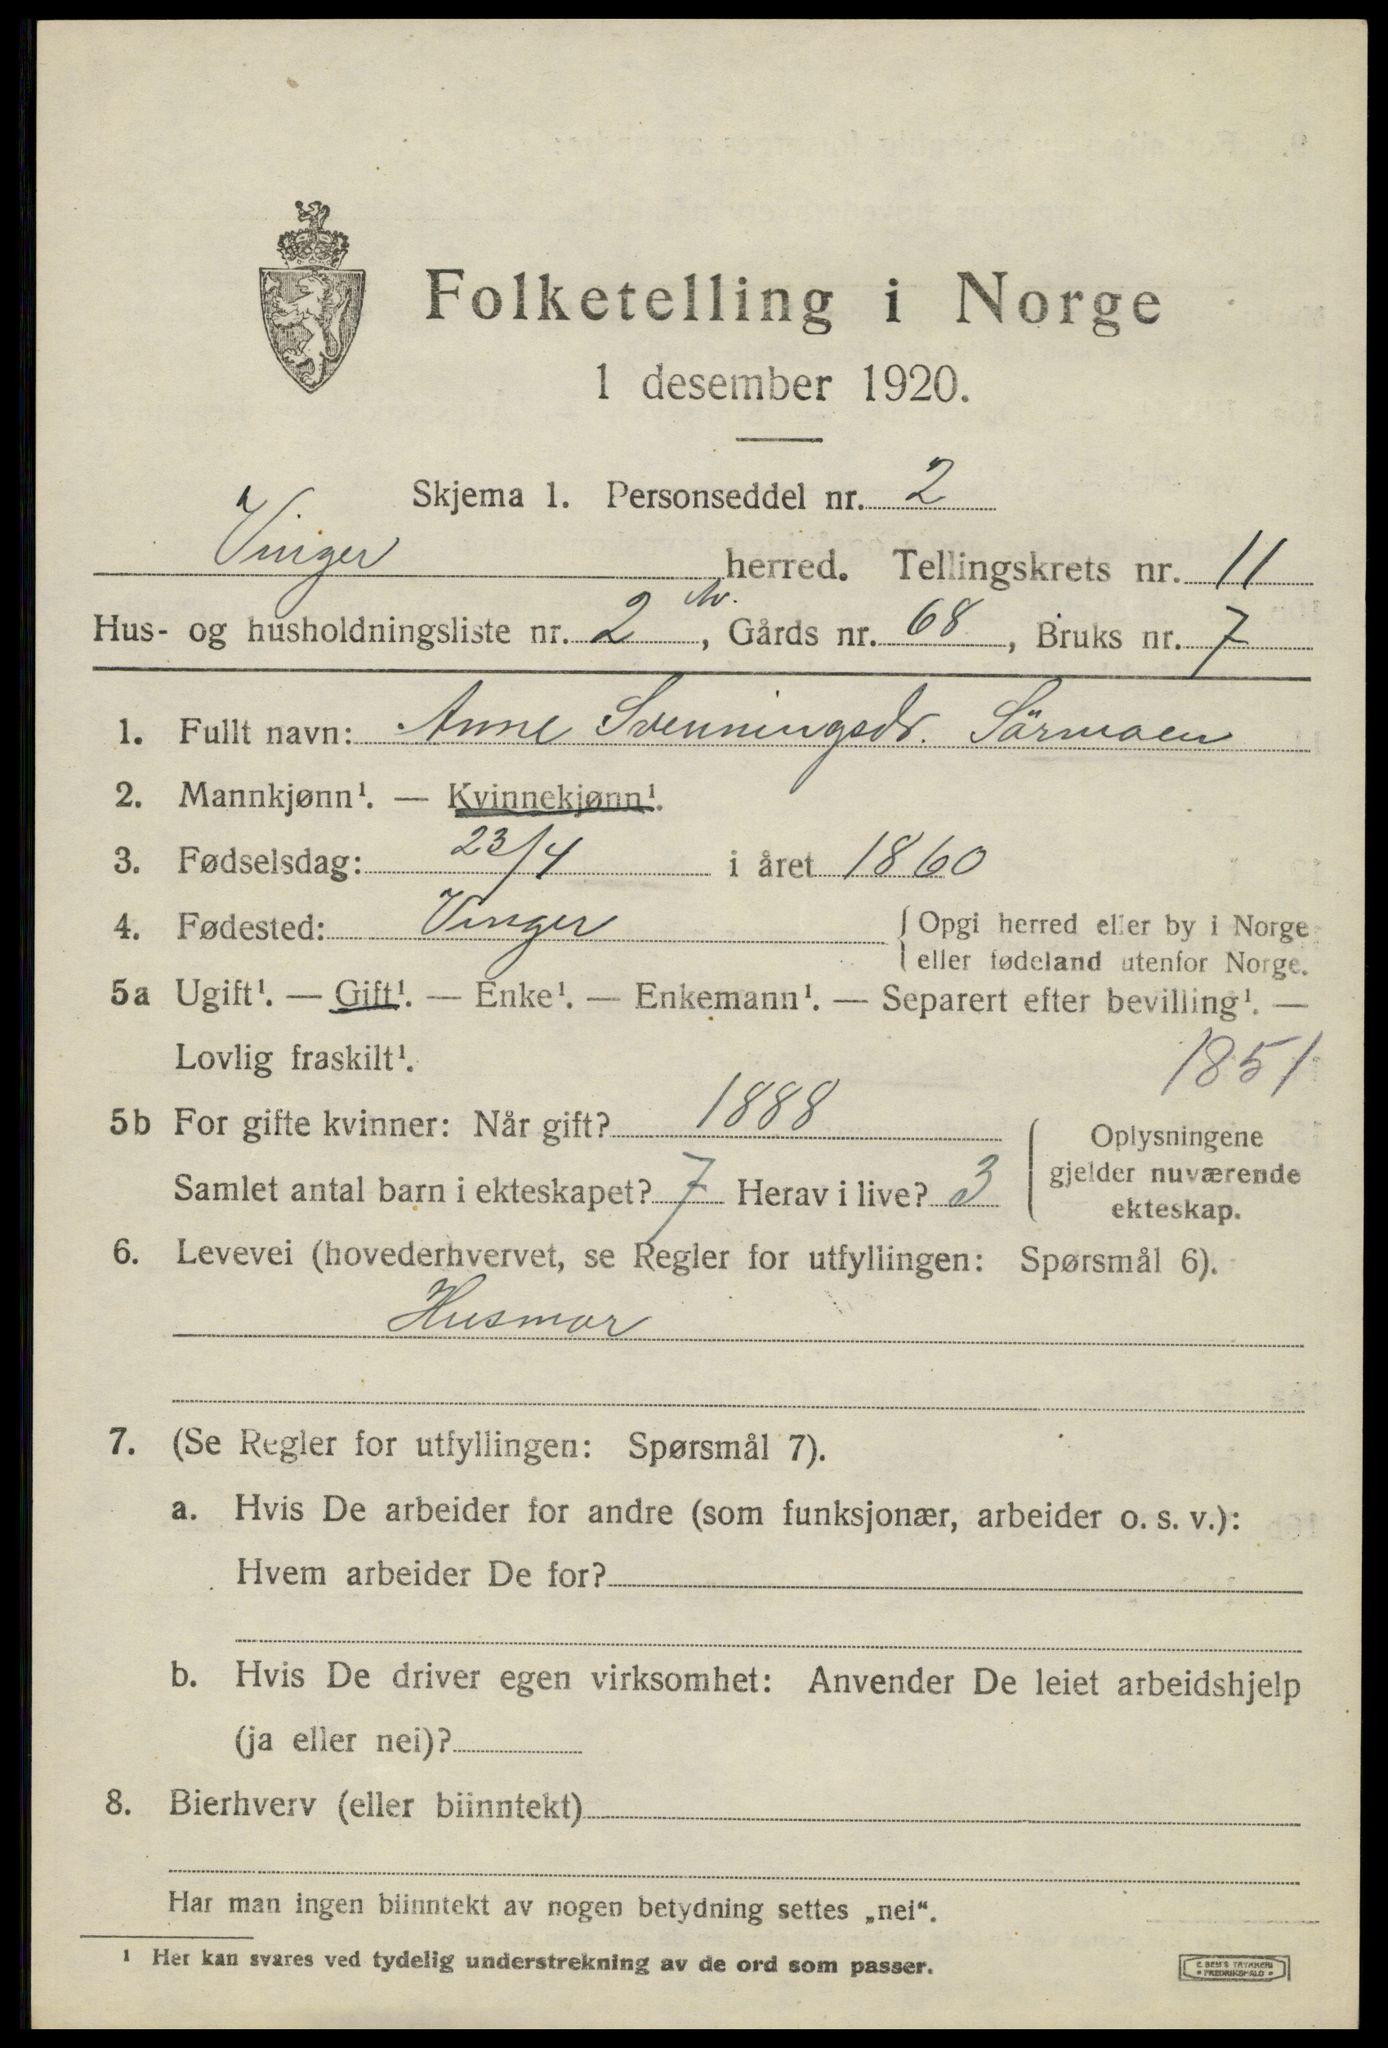 Folketelling i Norge
1 desember 1920.
Skjema 1. Personseddel nr. 2
Vinger herred. Tellingskrets nr. 11
Hus- og husholdningsliste nr. 2, Gårds nr. 68, Bruks nr. 7
1. Fullt navn: Anne Svenningsdr. Sörmoen
2. Mannkjønn¹. — Kvinnekjønn¹.
3. Fødselsdag: 23/4 i året 1860
4. Fødested: Vinger { Opgi herred eller by i Norge
eller fødeland utenfor Norge.
5a Ugift¹. — Gift¹. — Enke¹. — Enkemann¹. — Separert efter bevilling¹. —
Lovlig fraskilt¹. 1851
5b For gifte kvinner: Når gift? 1888
Samlet antal barn i ekteskapet? 7 Herav i live? 3
Oplysningene
gjelder nuværende
ekteskap.
6. Levevei (hovederhvervet, se Regler for utfyllingen: Spørsmål 6).
Husmor
7. (Se Regler for utfyllingen: Spørsmål 7).
a. Hvis De arbeider for andre (som funksjonær, arbeider o. s. v.):
Hvem arbeider De for?
b. Hvis De driver egen virksomhet: Anvender De leiet arbeidshjelp
(ja eller nei)?
8. Bierhverv (eller biinntekt)
Har man ingen biinntekt av nogen betydning settes „nei“.
¹ Her kan svares ved tydelig understrekning av de ord som passer.
E. SEM'S TRYKKERI
• FREDRIKSHALD •